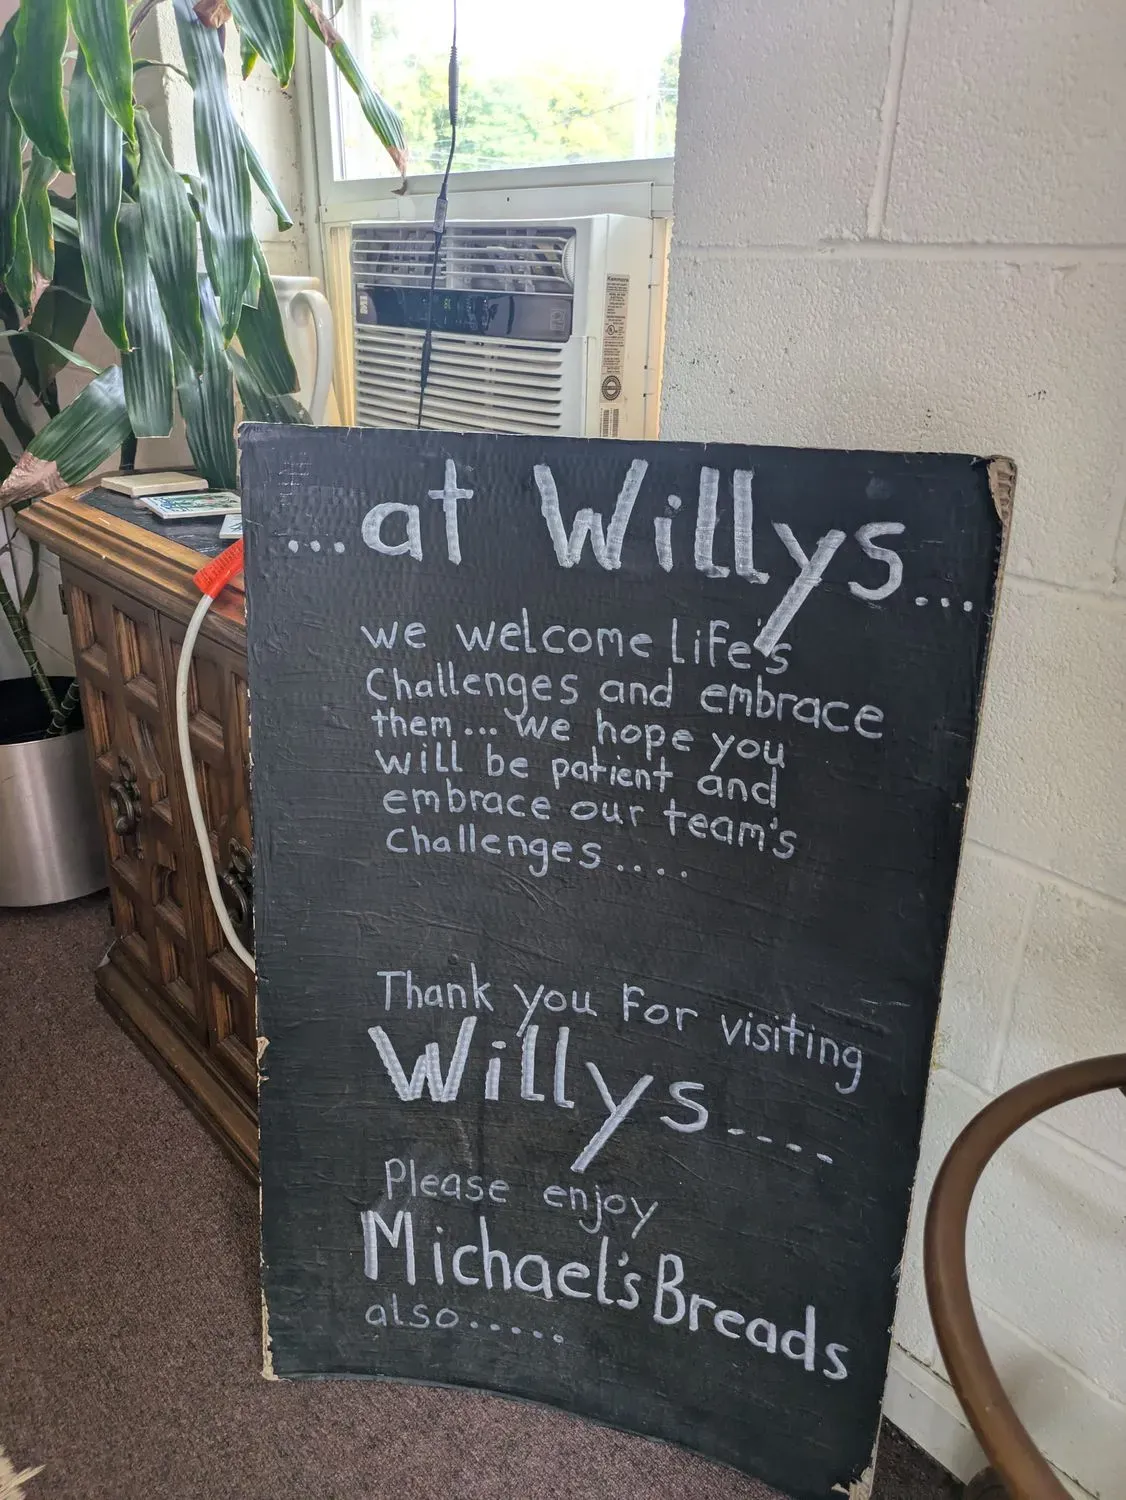 ...at Willys...
we welcome life's
Challenges and embrace
them... we hope you
will be patient and
embrace our team's
challenges....
Thank you for visiting
Willys....
Please enjoy
Michael's Breads
also.....
Kenmore